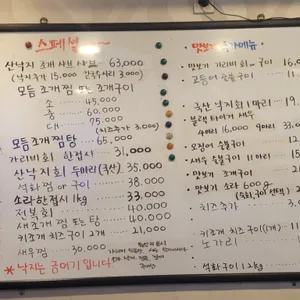 스페셜
산낙지 조개 샤브샤브 63,000
(낙지추가 15,000 칼국수사리 3,000)
모듬 조개찜 또는 조개구이
소 45,000
중 60,000
대 75,000
(치즈추가 3,000)
모듬조개찜탕 65,000
가리비회 한접시 31,000
산낙지회 두마리(국산) 35,000
석화찜 or 구이 38,000
소라한접시 1kg 33,000
전복회 40,000
새조개 찜 또는 탕
키조개 치즈구이 2개 21,000
새우찜 30,000
* 낙지는 국내기 입니다
맛보기 추가메뉴
맛보기 가리비회 구이 16,0
고등어 숯불구이
국산 낙지회 1마리 19,
블랙타이거 새우
4마리 16,000 9마리 33,0
오징어 숯불구이
새우 숯불구이 11마리
맛보기 조개구이
맛보기 소라 600g
치즈추가
키조개 치즈구이(1개) 11,
노가리
석화구이 1.2kg